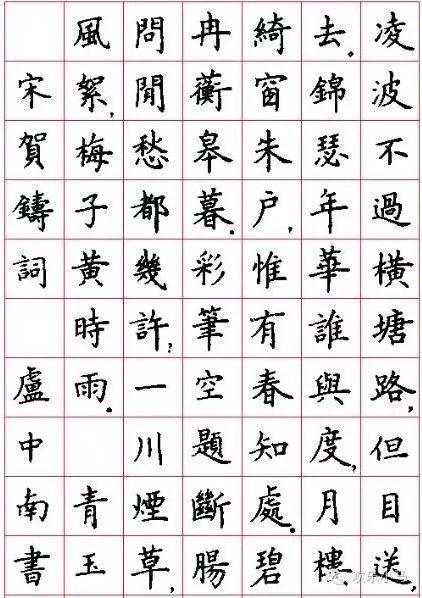 凌波不過橫塘路，但目送，
去。錦瑟年華誰與度，月樓
綺窗朱户，惟有春知處。碧
冉蘅皋暮。彩筆空題斷腸
問閒愁都幾許？一川煙草，
風絮，梅子黃時雨。青玉
宋賀鑄詞 盧中南書